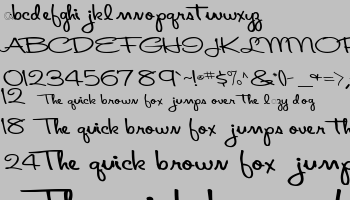 bcdefghi jklmnopqrstuvwxyz
ABCDEFGHIJKLMNOP
0123456789
12 The quick brown fox jumps over The l zy dog
18 The quick brown fox jumps over Th
24 The quick brown fox jump